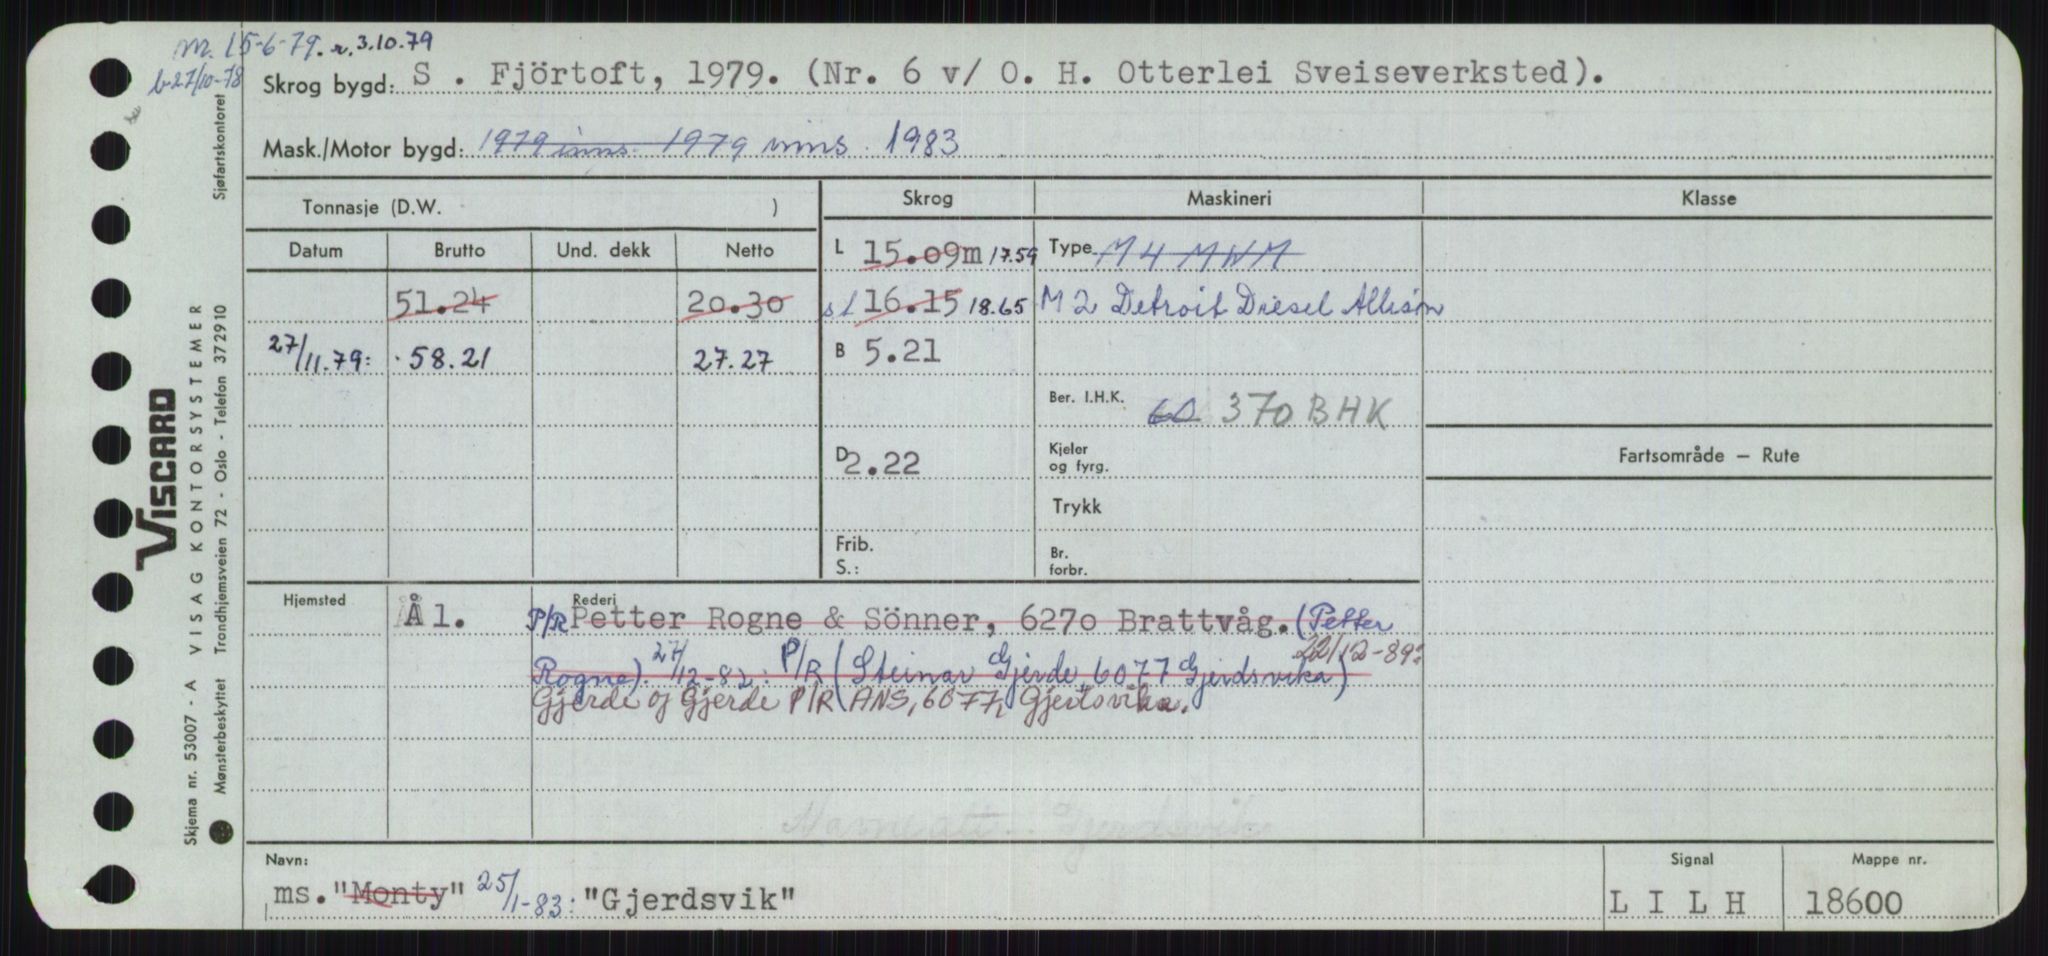 m. 15-6-79. r. 3.10.79
b-27/10-78
Skrog bygd: S . Fjörtoft, 1979. (Nr. 6 v/ O. H. Otterlei Sveiseverksted).
Mask./Motor bygd: 1979 inns. 1979 inns. 1983
Tonnasje (D.W. )
Skrog Maskineri Klasse
Datum Brutto Und. dekk Netto
L 15.09m 17.59 Type M 4 MWM
51.24 20.30 sl 16.15 18.65 M 2 Detroit Diesel Allison
27/11.79: 58.21 27.27 B 5.21
Ber. I.H.K. 60 370 BHK
D 2.22 Kjeler og fyrg.
Fartsområde — Rute
Trykk
Frib.
S.:
Br. forbr.
Hjemsted Ål. Rederi
P/R Petter Rogne & Sönner, 6270 Brattvåg. (Petter
Rogne). 27/12-82: P/R (Steinar Gjerde, 6077 Gjerdsvika) 22/12-89:
Gjerde og Gjerde P/R ANS, 6077, Gjerdsvika.
Navn: Signal Mappe nr.
ms. "Monty" 25/1-83: "Gjerdsvik" L I L H 18600
VISCARD
Skjema nr. 53007 - A VISAG KONTORSYSTEMER
Mønsterbeskyttet Trondhjemsveien 72 - Oslo - Telefon 372910 Sjøfartskontoret